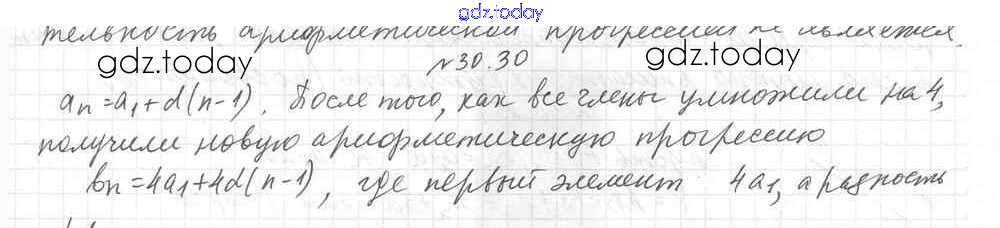 gdz.today
тельность арифметической прогрессией не является.
gdz.today №30.30 gdz.today
aₙ=a₁+d(n-1). После того, как все члены умножили на 4,
получили новую арифметическую прогрессию
вₙ=4a₁+4d(n-1), где первый элемент 4a₁, а разность